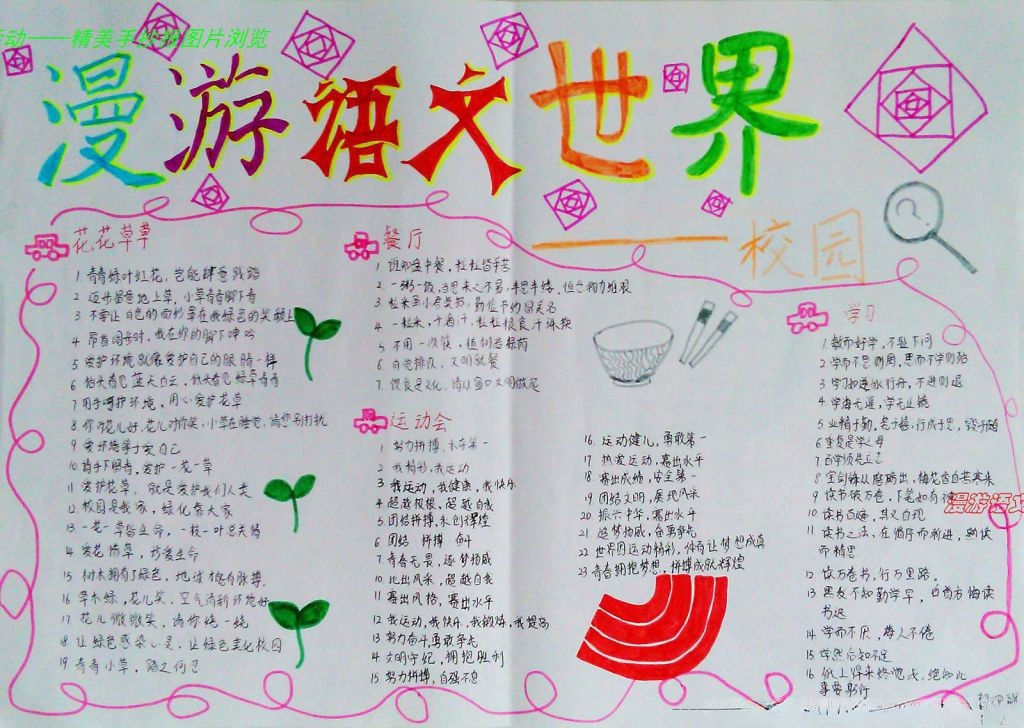 动——精美手抄报图片浏览
漫游语文世界
校园
花花草草
1 青青绿叶红花，岂能肆意践踏
2 迈步留意地上草，小草青青脚下香
3 不要让白色的面纱罩在我绿色的笑颜上
4 昂首阔步时，我在你的脚下呻吟
5 爱护环境就像爱护自己的眼睛一样
6 抬头看见蓝天白云，低头看见绿草青青
7 用手呵护环境，用心爱护花草
8 你对花儿好，花儿对你笑，小草在睡觉，请您别打扰
9 爱环境等于爱自己
10 请手下留青，爱护一花一草
11 爱护花草，就是爱护我们人类
12 校园是我家，绿化靠大家
13 一花一草皆生命，一枝一叶总关情
14 爱花惜草，珍爱生命
15 树木拥有了绿色，地球才能有脉搏
16 草木绿，花儿笑，空气清新环境好
17 花儿微微笑，请你绕一绕
18 让绿色感染心灵，让绿色美化校园
19 青青小草，踏之何忍
餐厅
1 谁知盘中餐，粒粒皆辛苦
2 一粥一饭，当思来之不易，半丝半缕，恒念物力维艰
4 一粒米，千滴汗，粒粒粮食汗珠换
6 自觉排队，文明就餐
运动会
1 努力拼搏，永夺第一
2 我精彩，我运动
3 我运动，我健康，我快乐
4 超越极限，超越自我
5 团结拼搏，永创辉煌
6 团结 拼搏 奋斗
7 青春无畏，逐梦扬威
10 比出风采，超越自我
11 赛出风格，赛出水平
12 我运动，我快乐，我锻炼，我提高
13 努力奋斗，勇敢争先
14 文明守纪，拥抱胜利
15 努力拼搏，自强不息
16 运动健儿，勇敢第一
17 热爱运动，赛出水平
18 赛出成绩，安全第一
19 团结文明，展现风采
20 振六中华，赛出水平
21 逐梦扬威，奋勇争先
22 世界因运动精彩，体育让梦想成真
23 青春拥抱梦想，拼搏成就辉煌
学习
1 敏而好学，不耻下问
2 学而不思则罔，思而不学则殆
3 学习如逆水行舟，不进则退
4 学海无涯，学无止境
5 业精于勤，荒于嬉；行成于思，毁于随
6 重复是学之母
7 百学须先立志
8 宝剑锋从磨砺出，梅花香自苦寒来
9 读书破万卷，下笔如有神
10 读书百遍，其义自现
11 读书之法，在循序而渐进，熟读
而精思
12 读万卷书，行万里路。
13 黑发不知勤学早，白首方悔读
书迟
14 学而不厌，诲人不倦
15 学然后知不足
16 纸上得来终觉浅，绝知此
事要躬行
漫游语文